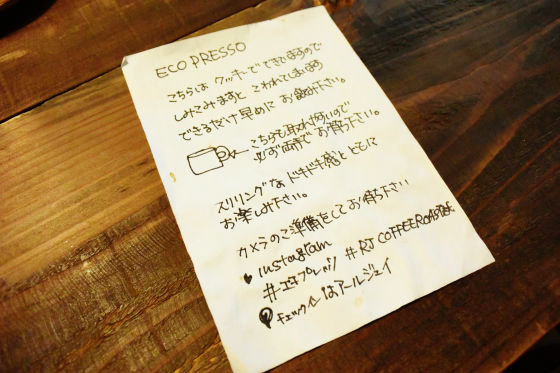 ECO PRESSO
こちらは クッキーで できてますので
しみこみますと こわれてしまいます
できるだけ早めに お飲み下さい。
こちらも取れ易いので
必ず両手で お持ち下さい。
スリリングな ドキドキ感と ともに
お楽しみ下さい。
カメラのご準備をして お待ち下さい
Instagram
#エコプレッソ #RJ COFFEE ROASTERS
チェックインはアールジェイ